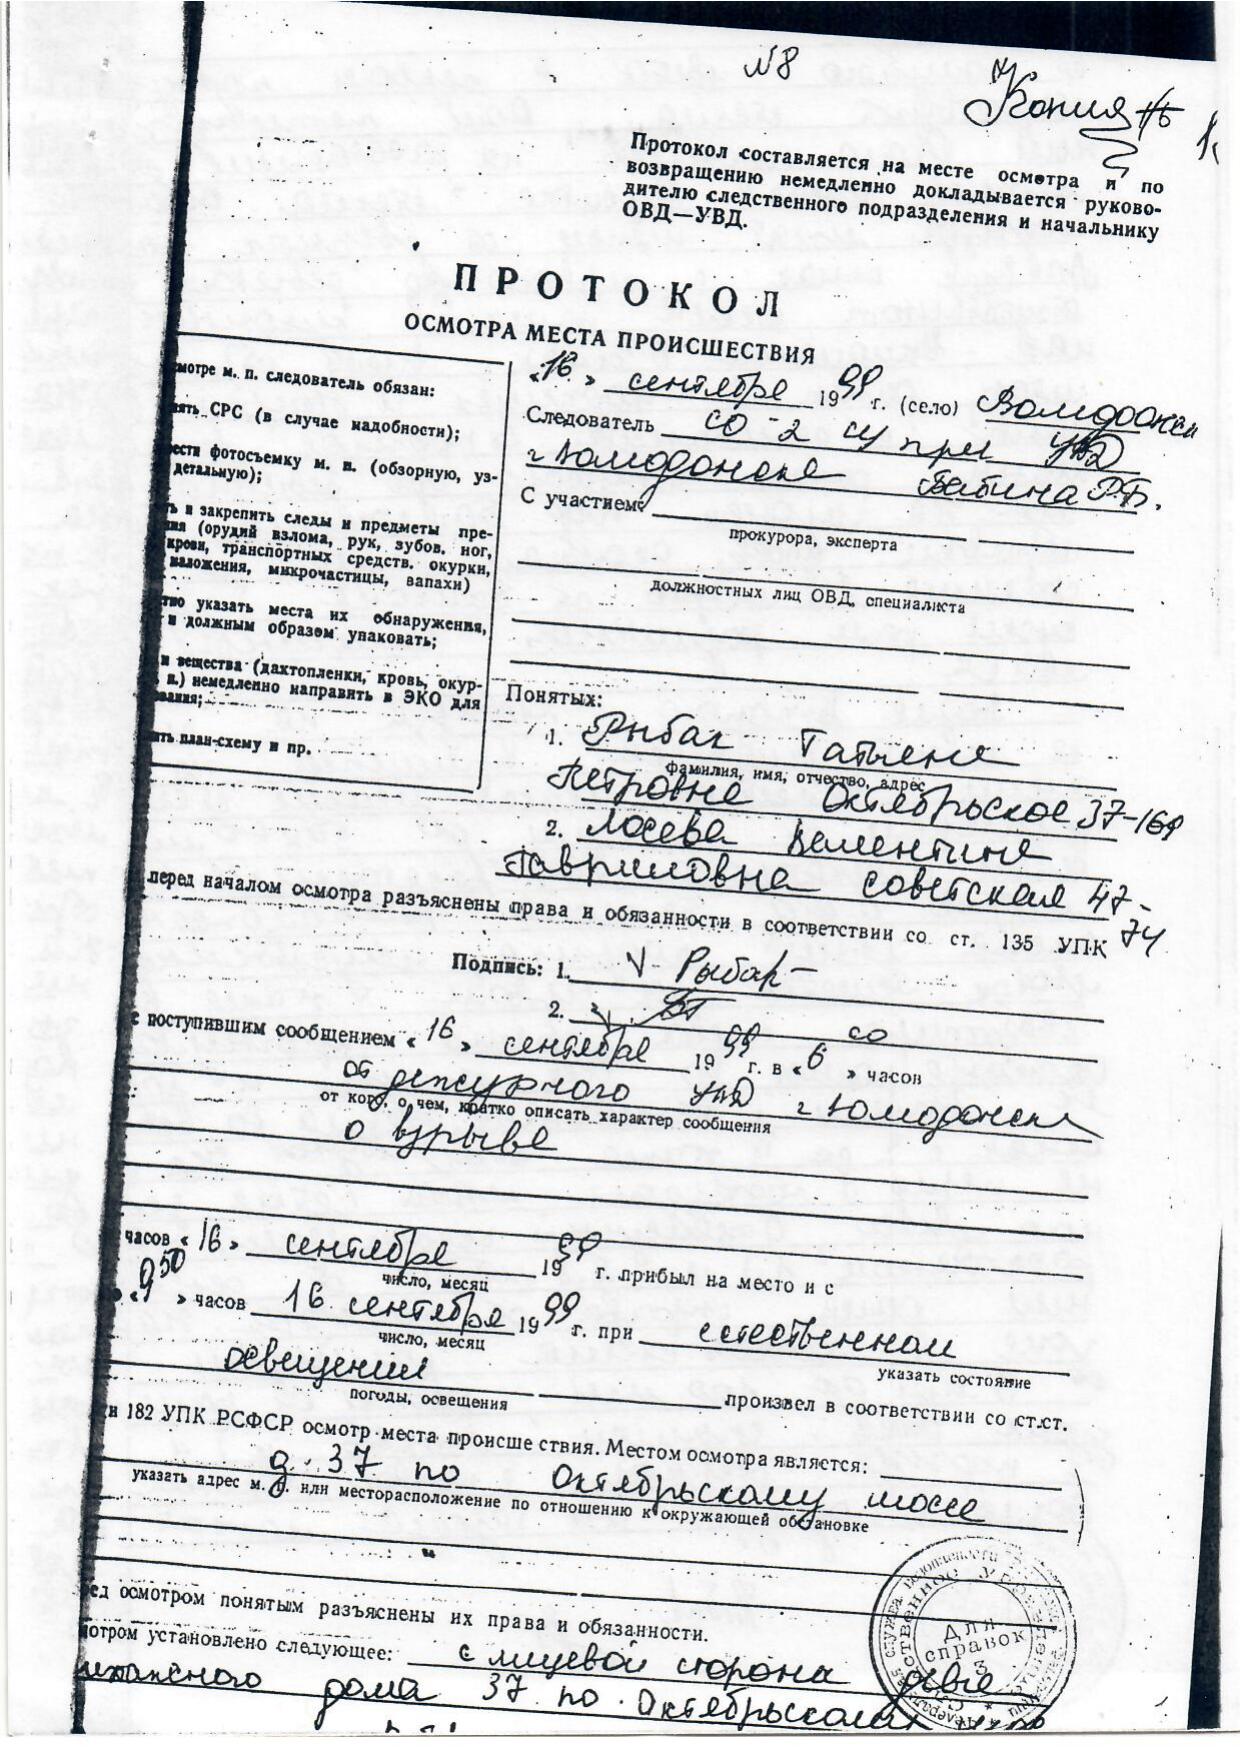 №8
Копия
Протокол составляется на месте осмотра и по
возвращению немедленно докладывается руково-
дителю следственного подразделения и начальнику
ОВД—УВД.
ПРОТОКОЛ
ОСМОТРА МЕСТА ПРОИСШЕСТВИЯ
смотре м. п. следователь обязан:
СРС (в случае надобности);
фотосъемку м. п. (обзорную, уз-
детальную);
и закрепить следы и предметы пре-
(орудий взлома, рук, зубов, ног,
крови, транспортных средств, окурки,
наложения, микрочастицы, запахи)
указать места их обнаружения,
и должным образом упаковать;
и вещества (дактопленки, кровь, окур-
п.) немедленно направить в ЭКО для
план-схему и пр.
«16» сентября 1999 г. (село) Волгодонск
Следователь СО-2 СУ при УВД
г Волгодонска
С участием:
прокурора, эксперта
должностных лиц ОВД, специалиста
Понятых:
1. Рыбак Татьяна
фамилия, имя, отчество, адрес
Петровна Октябрьское 37-169
2. Лосева Валентина
Гавриловна Советская 47-
74
перед началом осмотра разъяснены права и обязанности в соответствии со ст. 135 УПК
Подпись: 1. Рыбак
2.
со
с поступившим сообщением «16» сентября 1999 г. в «6» часов
от дежурного УВД г Волгодонска
от кого, о чем, кратко описать характер сообщения
о взрыве
часов «16» сентября 1999 г. прибыл на место и с
число, месяц
«9 50» часов 16 сентября 1999 г. при естественном
число, месяц
указать состояние
освещении произвел в соответствии со ст.ст.
погоды, освещения
и 182 УПК РСФСР осмотр места происшествия. Местом осмотра является:
д. 37 по Октябрьскому шоссе
указать адрес м. п. или месторасположение по отношению к окружающей обстановке
ред осмотром понятым разъяснены их права и обязанности.
мотром установлено следующее: с лицевой стороны
дома 37 по Октябрьскому
Для
справок
3